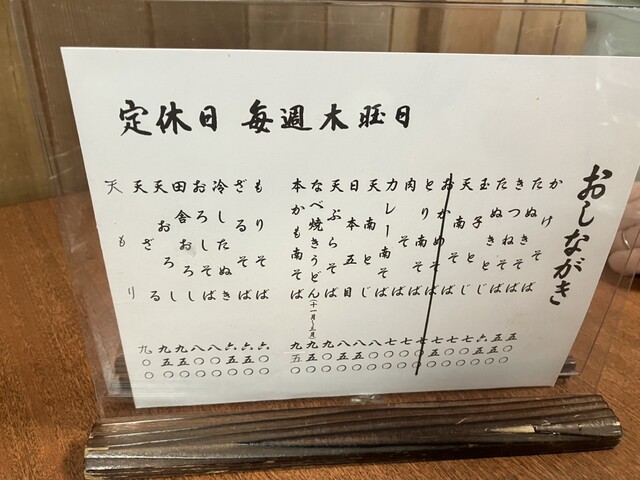 定休日 毎週木曜日
おしながき
かけそば 五〇〇
たぬきそば 五五〇
きつねそば 六五〇
たぬきとじ 七〇〇
玉子とじ 七〇〇
天南そば 七五〇
おかめそば 七〇〇
とり南そば 七〇〇
肉そば 七〇〇
カレー南そば 八〇〇
天南とじ 八五〇
日本五目 八五〇
天ぷらそば 九〇〇
なべ焼きうどん(十一月〜三月) 九五〇
本かも南そば 九五〇
もりそば 六〇〇
ざるそば 六五〇
冷したぬき 六五〇
おろしそば 八〇〇
田舎おろし 八〇〇
天おろし 九五〇
天ざる 九五〇
天もり 九〇〇